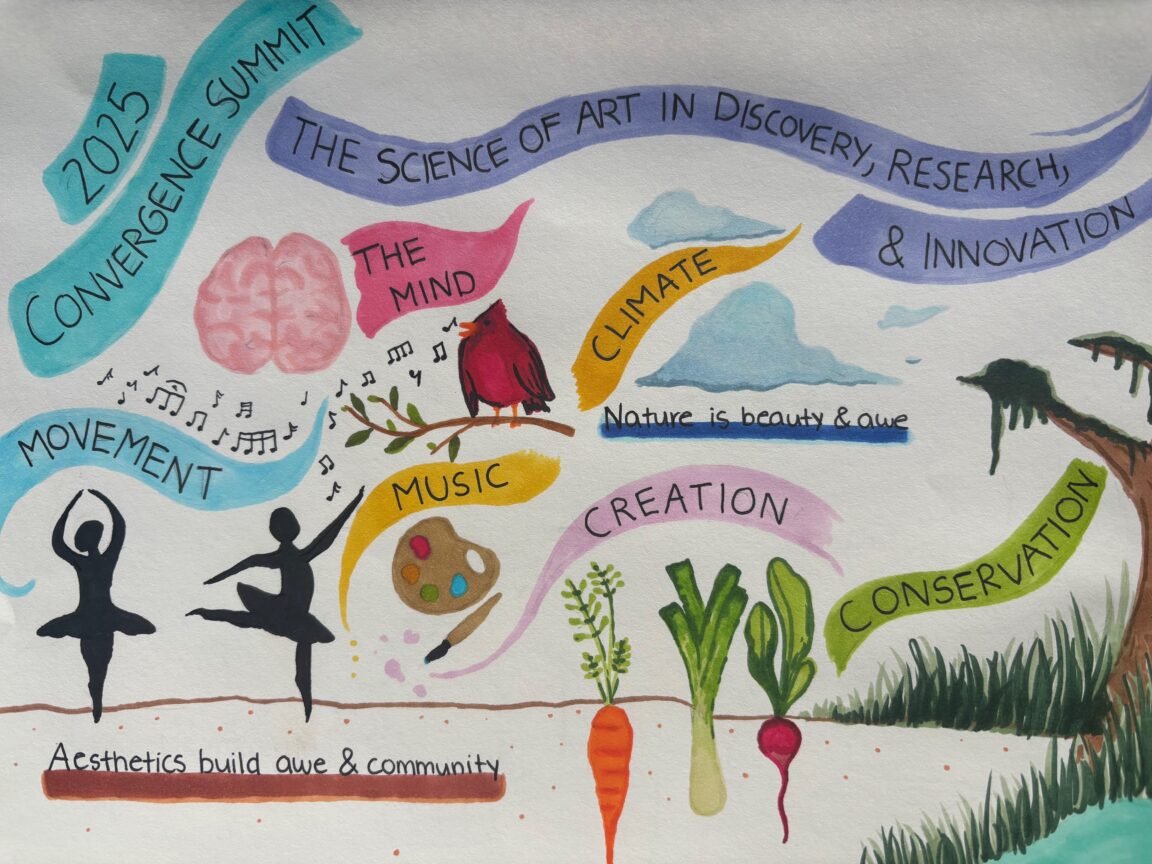 2025
CONVERGENCE SUMMIT
THE SCIENCE OF ART IN DISCOVERY, RESEARCH,
& INNOVATION
THE
MIND
CLIMATE
Nature is beauty & awe
MOVEMENT
MUSIC
CREATION
CONSERVATION
Aesthetics build awe & community